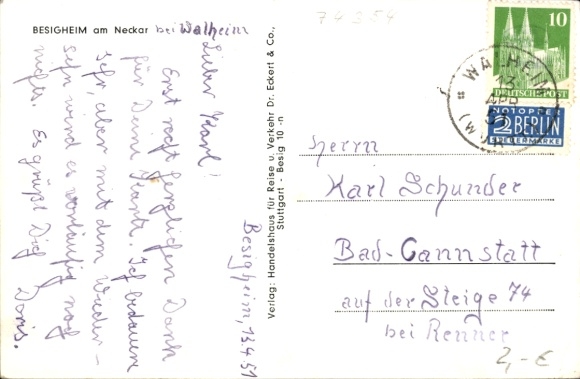 BESIGHEIM am Neckar bei Walheim
Lieber Karl!
Erst recht herzlichen Dank
für Deine Karte. Ich bedauere
sehr, aber mit dem Wieder-
sehn wird es vorläufig noch
nichts. Es grüßt Dich
Doris.
Besigheim, 13.4.51
Verlag: Handelshaus für Reise u. Verkehr Dr. Eckert & Co.,
Stuttgart - Besig 10 -n
10
DEUTSCHE POST
NOTOPFER
2 BERLIN
STEUERMARKE
WALHEIM
13
APR
(WÜR
Herrn
Karl Schunder
Bad-Cannstatt
auf der Steige 74
bei Renner
2,- €